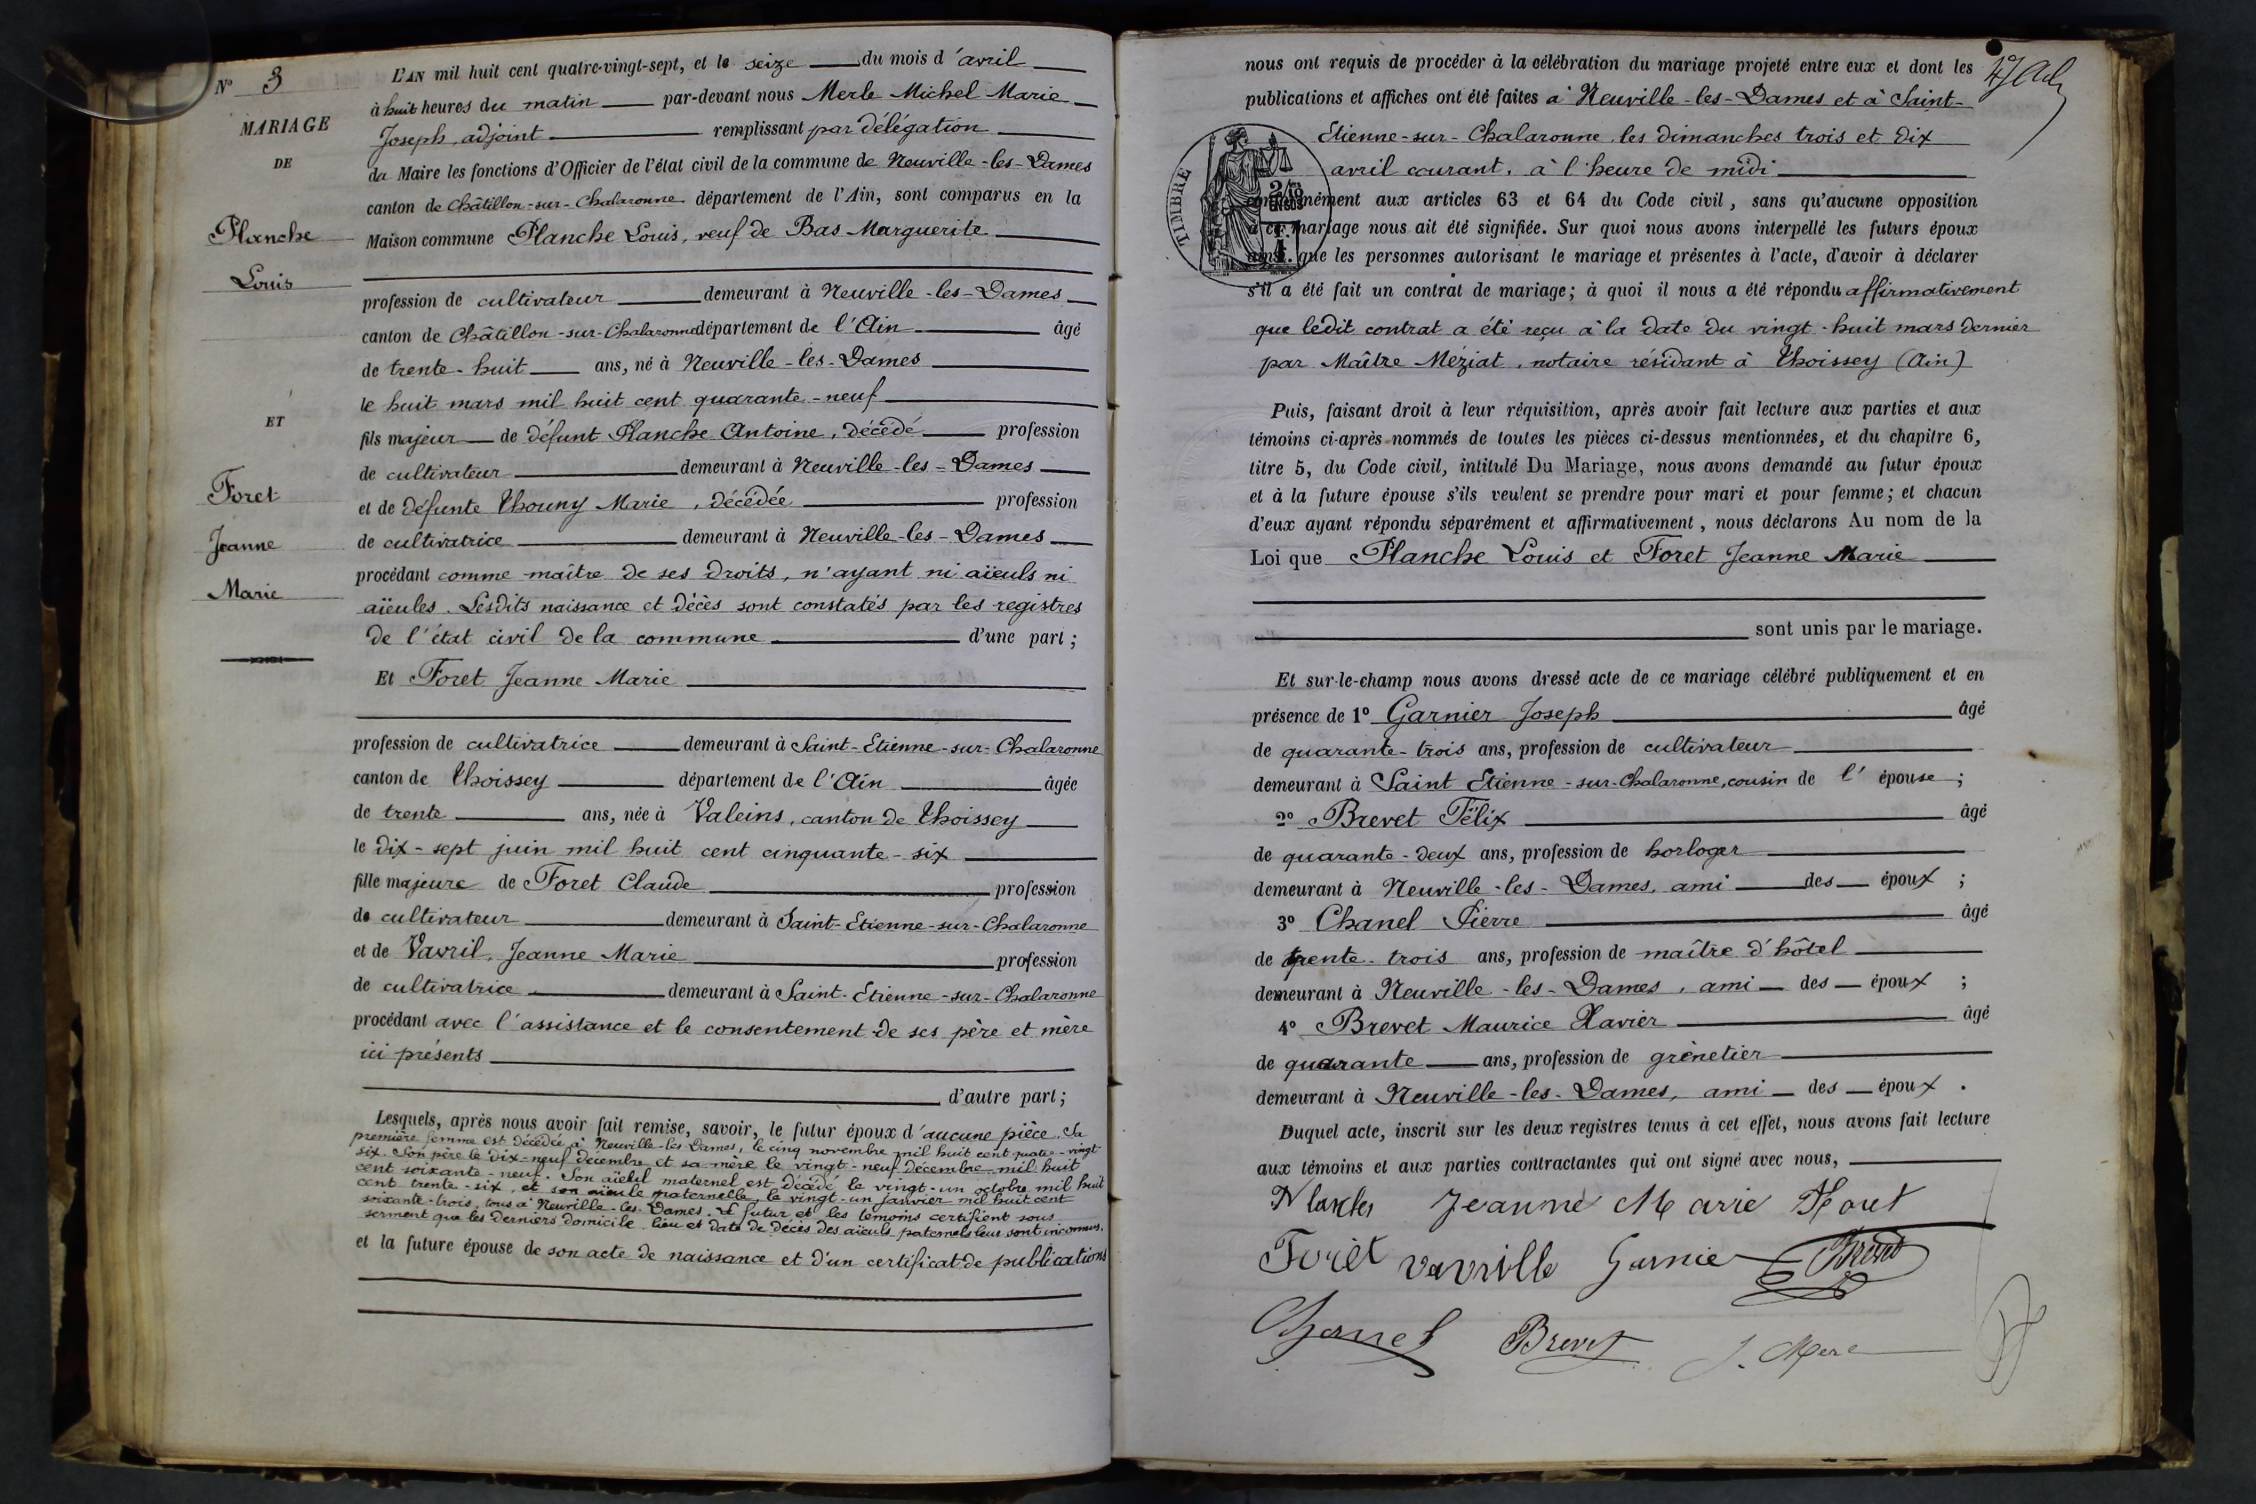 N° 3
MARIAGE
DE
Planche
Louis
ET
Foret
Jeanne
Marie
L'AN mil huit cent quatre-vingt-sept, et le seize du mois d'avril
à huit heures du matin par-devant nous Merle Michel Marie
Joseph, adjoint remplissant par délégation
du Maire les fonctions d'Officier de l'état civil de la commune de Neuville-les-Dames
canton de Châtillon-sur-Chalaronne département de l'Ain, sont comparus en la
Maison commune Planche Louis, veuf de Bas Marguerite
profession de cultivateur demeurant à Neuville-les-Dames
canton de Châtillon-sur-Chalaronne département de l'Ain âgé
de trente-huit ans, né à Neuville-les-Dames
le huit mars mil huit cent quarante-neuf
fils majeur de défunt Planche Antoine, décédé profession
de cultivateur demeurant à Neuville-les-Dames
et de défunte Thouny Marie, décédée profession
de cultivatrice demeurant à Neuville-les-Dames
procédant comme maître de ses droits, n'ayant ni aïeuls ni
aïeules. Lesdits naissance et décès sont constatés par les registres
de l'état civil de la commune d'une part;
Et Foret Jeanne Marie
profession de cultivatrice demeurant à Saint-Etienne-sur-Chalaronne
canton de Thoissey département de l'Ain âgée
de trente ans, née à Valeins, canton de Thoissey
le dix-sept juin mil huit cent cinquante-six
fille majeure de Foret Claude profession
de cultivateur demeurant à Saint-Etienne-sur-Chalaronne
et de Vavril, Jeanne Marie profession
de cultivatrice demeurant à Saint-Etienne-sur-Chalaronne
procédant avec l'assistance et le consentement de ses père et mère
ici présents
d'autre part;
Lesquels, après nous avoir fait remise, savoir, le futur époux d'aucune pièce. Sa
première femme est décédée à Neuville-les-Dames, le cinq novembre mil huit cent quatre-vingt
six. Son père le dix-neuf décembre et sa mère le vingt-neuf décembre mil huit
cent soixante-neuf. Son aïeul maternel est décédé le vingt-un octobre mil huit
cent trente-six, et son aïeule maternelle, le vingt-un janvier mil huit cent
soixante-trois, tous à Neuville-les-Dames. Le futur et les témoins certifient sous
serment que les derniers domicile, lieu et date de décès des aïeuls paternels leur sont inconnus,
et la future épouse de son acte de naissance et d'un certificat de publications
nous ont requis de procéder à la célébration du mariage projeté entre eux et dont les
publications et affiches ont été faites à Neuville-les-Dames et à Saint-
Etienne-sur-Chalaronne, les dimanches trois et dix
avril courant, à l'heure de midi
TIMBRE
conformément aux articles 63 et 64 du Code civil, sans qu'aucune opposition
à ce mariage nous ait été signifiée. Sur quoi nous avons interpellé les futurs époux
ainsi que les personnes autorisant le mariage et présentes à l'acte, d'avoir à déclarer
s'il a été fait un contrat de mariage; à quoi il nous a été répondu affirmativement
que ledit contrat a été reçu à la date du vingt-huit mars dernier
par Maître Méziat, notaire résidant à Thoissey (Ain)
Puis, faisant droit à leur réquisition, après avoir fait lecture aux parties et aux
témoins ci-après nommés de toutes les pièces ci-dessus mentionnées, et du chapitre 6,
titre 5, du Code civil, intitulé Du Mariage, nous avons demandé au futur époux
et à la future épouse s'ils veulent se prendre pour mari et pour femme; et chacun
d'eux ayant répondu séparément et affirmativement, nous déclarons Au nom de la
Loi que Planche Louis et Foret Jeanne Marie
sont unis par le mariage.
Et sur-le-champ nous avons dressé acte de ce mariage célébré publiquement et en
présence de 1° Garnier Joseph âgé
de quarante-trois ans, profession de cultivateur
demeurant à Saint Etienne-sur-Chalaronne, cousin de l'épouse;
2° Brevet Félix âgé
de quarante-deux ans, profession de horloger
demeurant à Neuville-les-Dames, ami des époux;
3° Chanel Pierre âgé
de trente-trois ans, profession de maître d'hôtel
demeurant à Neuville-les-Dames, ami des époux;
4° Brevet Maurice Xavier âgé
de quarante ans, profession de grènetier
demeurant à Neuville-les-Dames, ami des époux.
Duquel acte, inscrit sur les deux registres tenus à cet effet, nous avons fait lecture
aux témoins et aux parties contractantes qui ont signé avec nous,
Jeanne Marie
Forêt Vavrille Garnier Brevet
Chanel Brevet